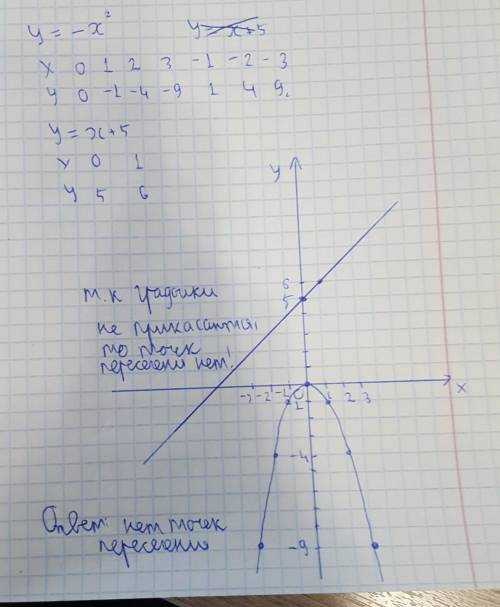 y = -x² y = x+5
x 0 1 2 3 -1 -2 -3
y 0 -1 -4 -9 1 4 9.
y = x+5
x 0 1
y 5 6
y
6
5
т.к графики
не прикасаются,
то точек
пересечения нет!
-3 -2 -1 0 1 2 3 x
-4
Ответ: нет точек
пересечения
-9